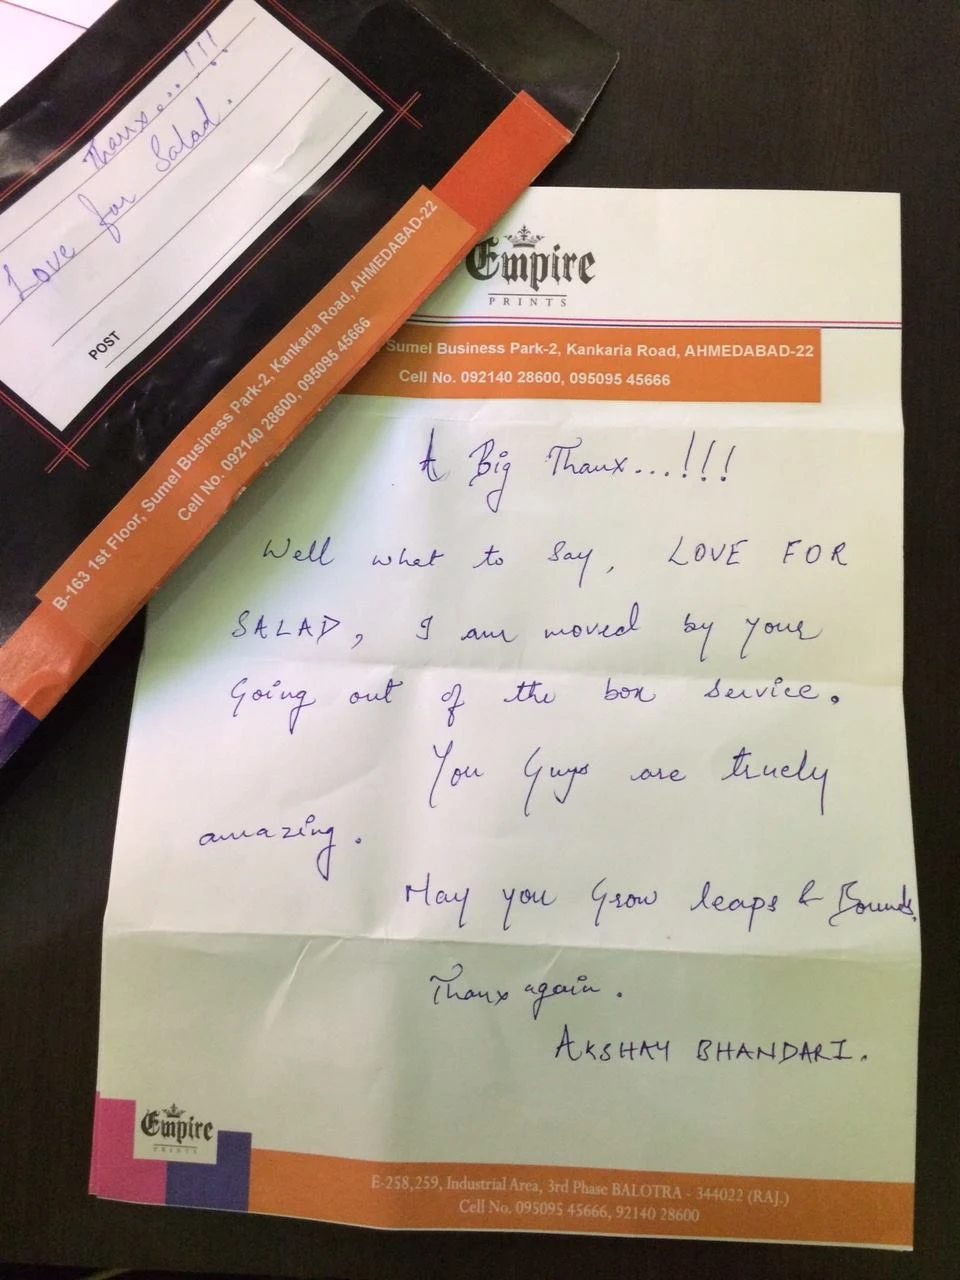 Thanx....!!!
Love for Salad.
POST
B-163 1st Floor, Sumel Business Park-2, Kankaria Road, AHMEDABAD-22
Cell No. 092140 28600, 095095 45666
Empire
PRINTS
Sumel Business Park-2, Kankaria Road, AHMEDABAD-22
Cell No. 092140 28600, 095095 45666
A Big Thanx...!!!
Well what to say, LOVE FOR
SALAD, I am moved by your
Going out of the box service.
You Guys are truely
amazing.
May you Grow leaps & Bounds.
Thanx again.
AKSHAY BHANDARI.
Empire
PRINTS
E-258,259, Industrial Area, 3rd Phase BALOTRA - 344022 (RAJ.)
Cell No. 095095 45666, 92140 28600